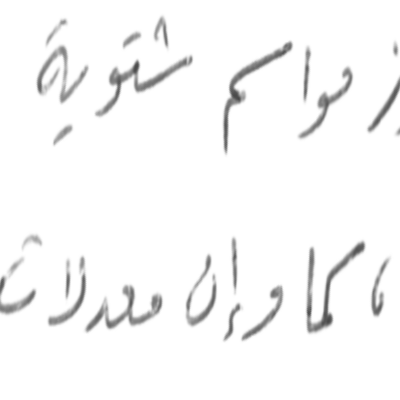 مواسم شتوية
، كما وإن معدلات